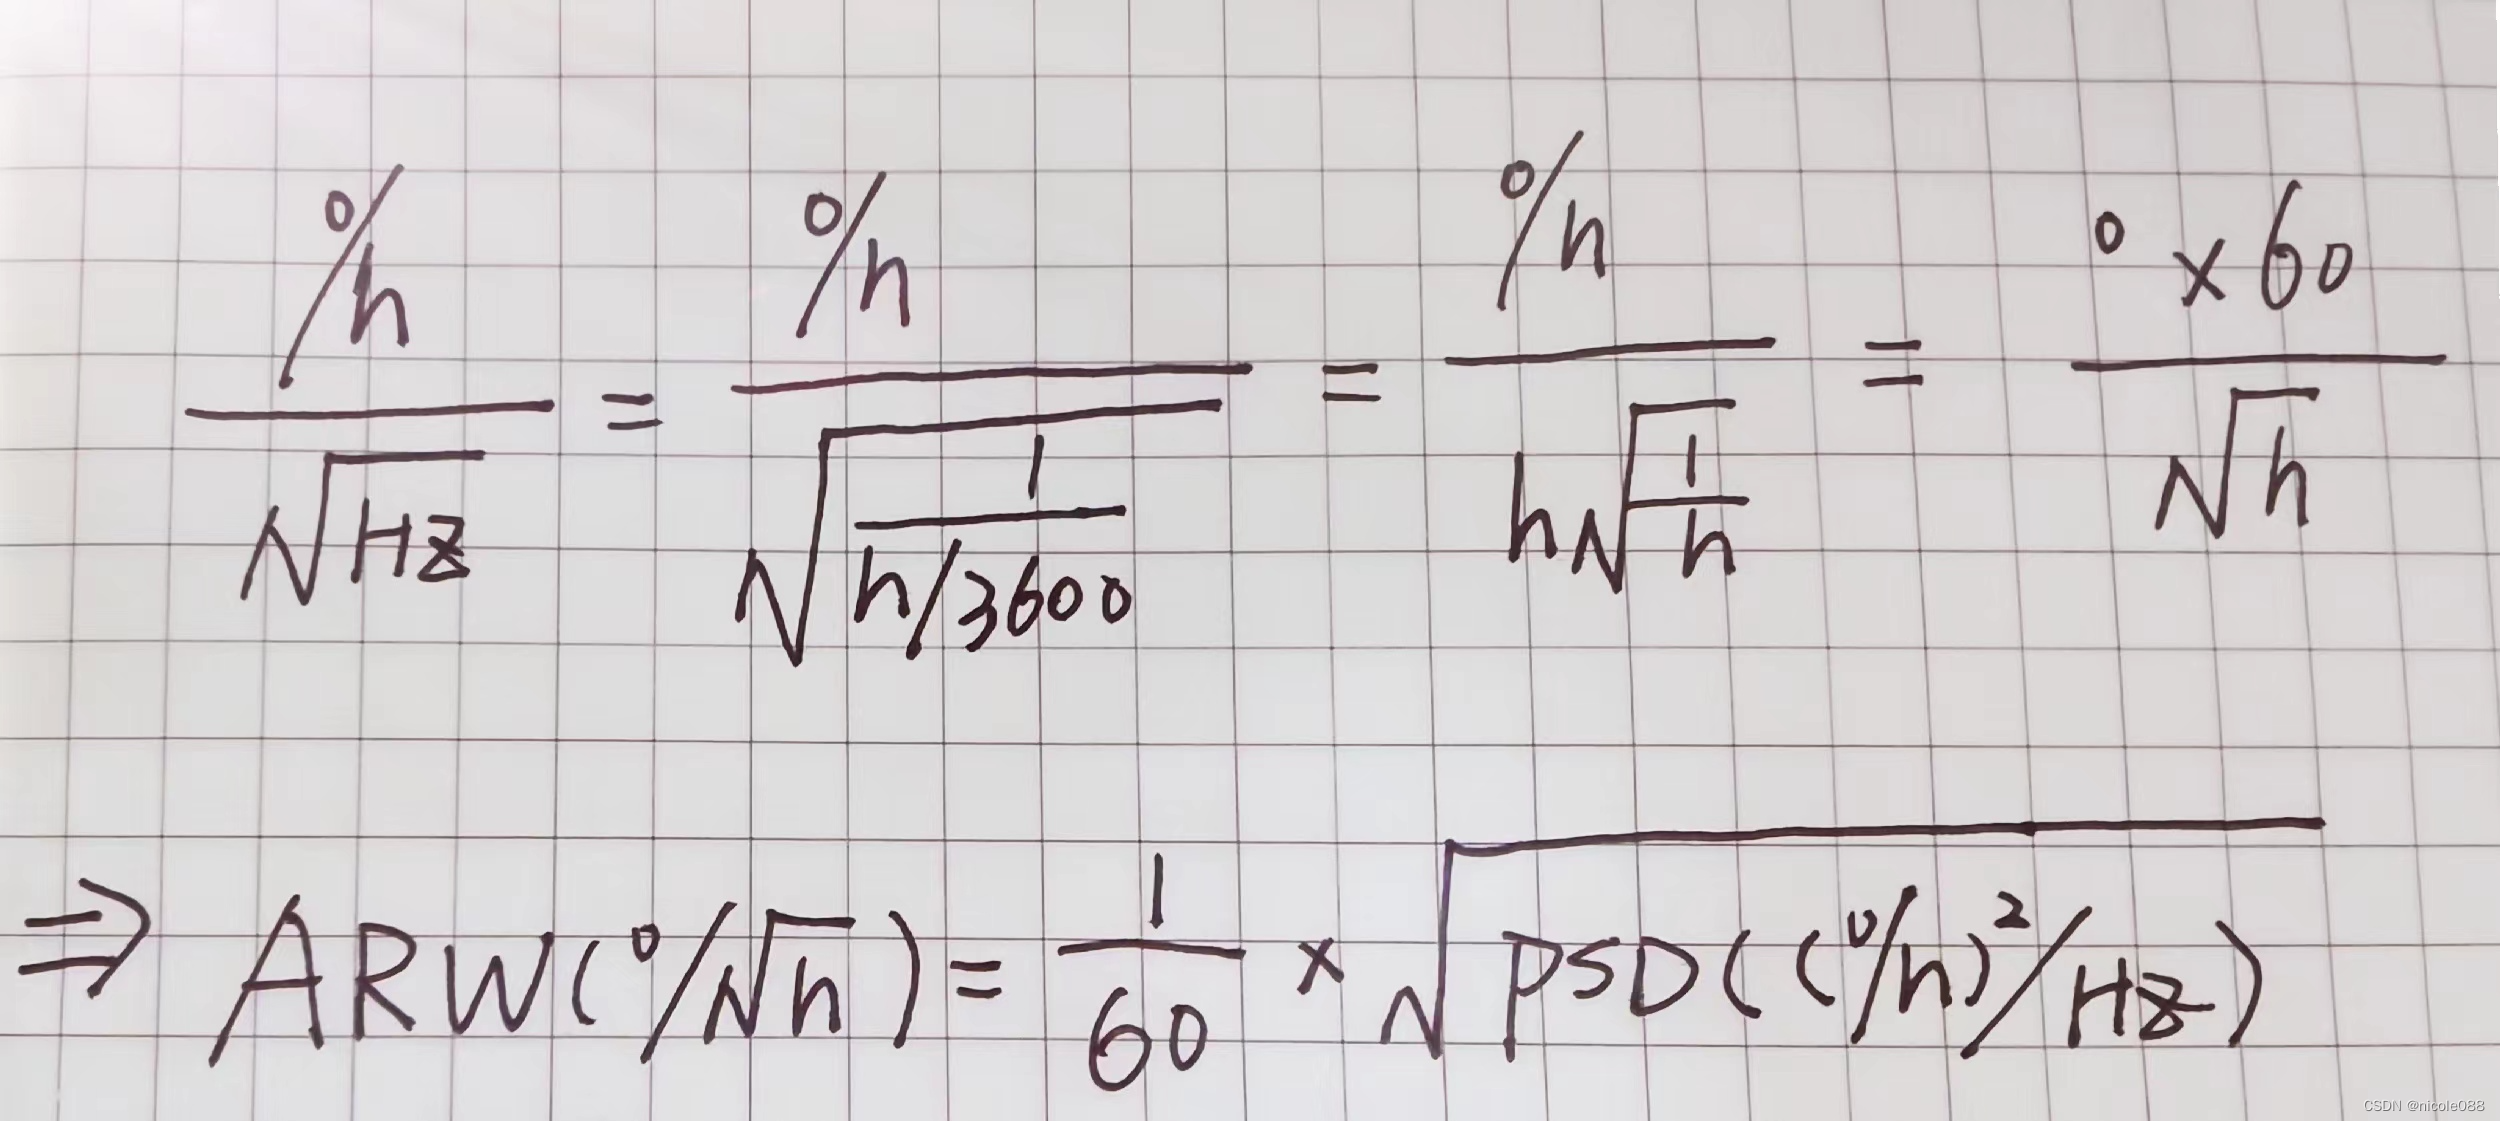 °/h / √Hz = °/h / √(1 / (h/3600)) = °/h / h√(1/h) = ° × 60 / √h
⇒ ARW(°/√h) = 1/60 × √PSD((°/h)²/Hz)
CSDN @nicole088